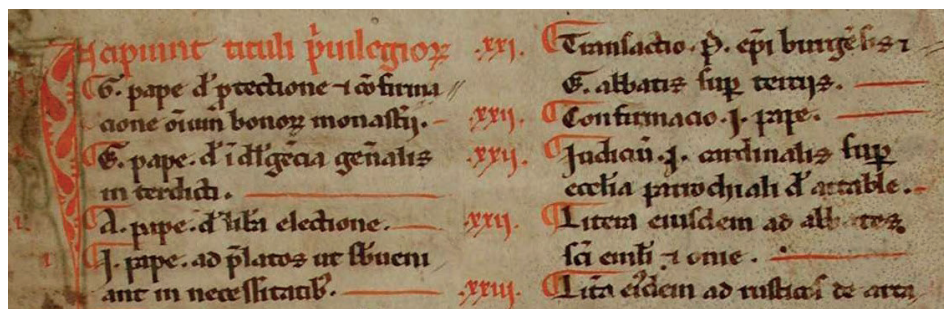 Incipiunt tituli p̄uilegioꝝ
G. pape dꝭ ꝓtectione ⁊ ꝯfirma
cione oīum bonoꝝ monastʼij.
G. pape. dꝭ īdl'gēcia gen̄alis
in terdicti.
A. pape. dꝭ lib̄a electione.
J. pape. ad p̄latos ut s̄bueni
ant in necessitatibꝫ.
.xxi. Transactio. P. ep̄i burgēsis ⁊
G. abbatis suꝑ tertijs.
.xxii. Confirmacio. J. pape.
.xxii. Judiciū. J. cardinalis suꝑ
eccl'ia parrochiali dꝭ artable.
.xxii. Litera eiusdem ad abbates
sc̄i emil'
.xxiii. Lit̄a eiꝰdem ad rusticos de arta